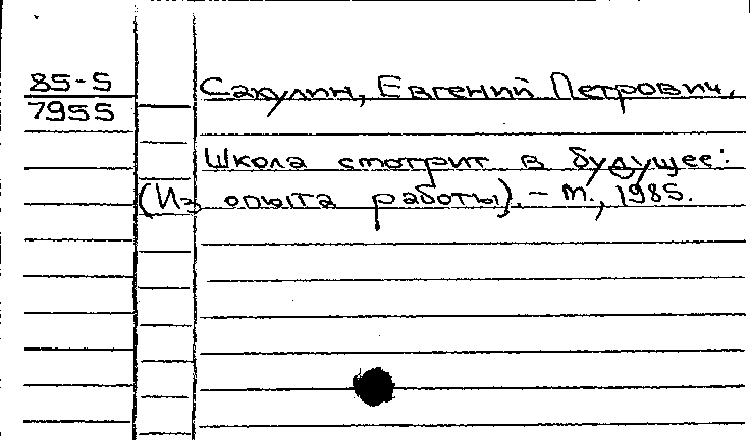 85-5
7955
Сакулин, Евгений Петрович.
Школа смотрит в будущее:
(Из опыта работы). – М., 1985.